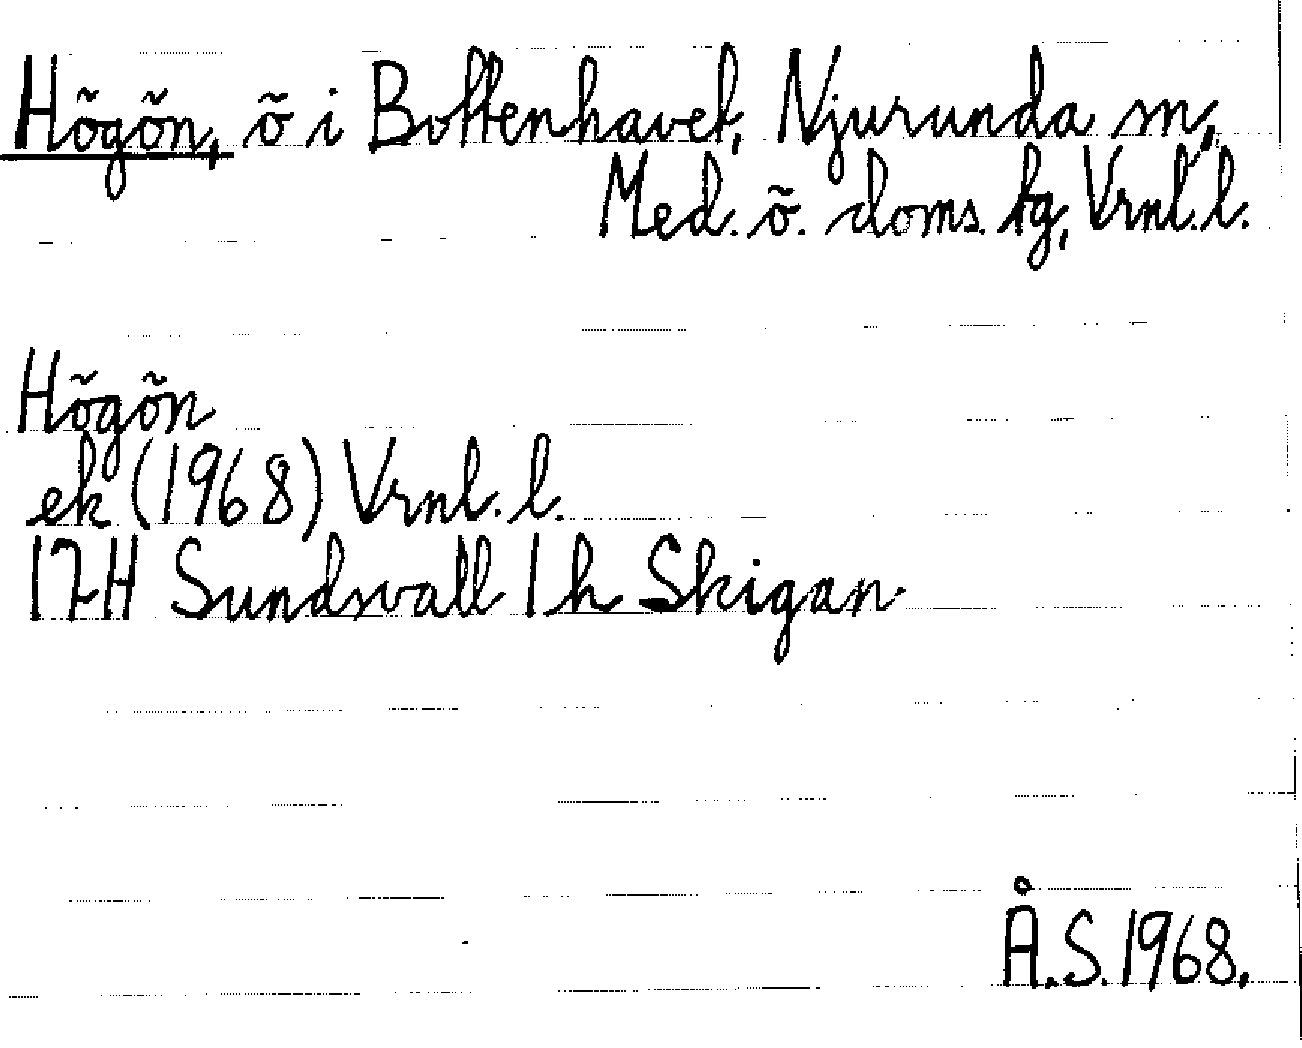 Högön, ö i Bottenhavet, Njurunda sn,
Med. ö. doms. tg, Vrnl. l.
Högön
ek (1968) Vrnl. l.
17H Sundsvall 1h Skigan
Å.S. 1968.